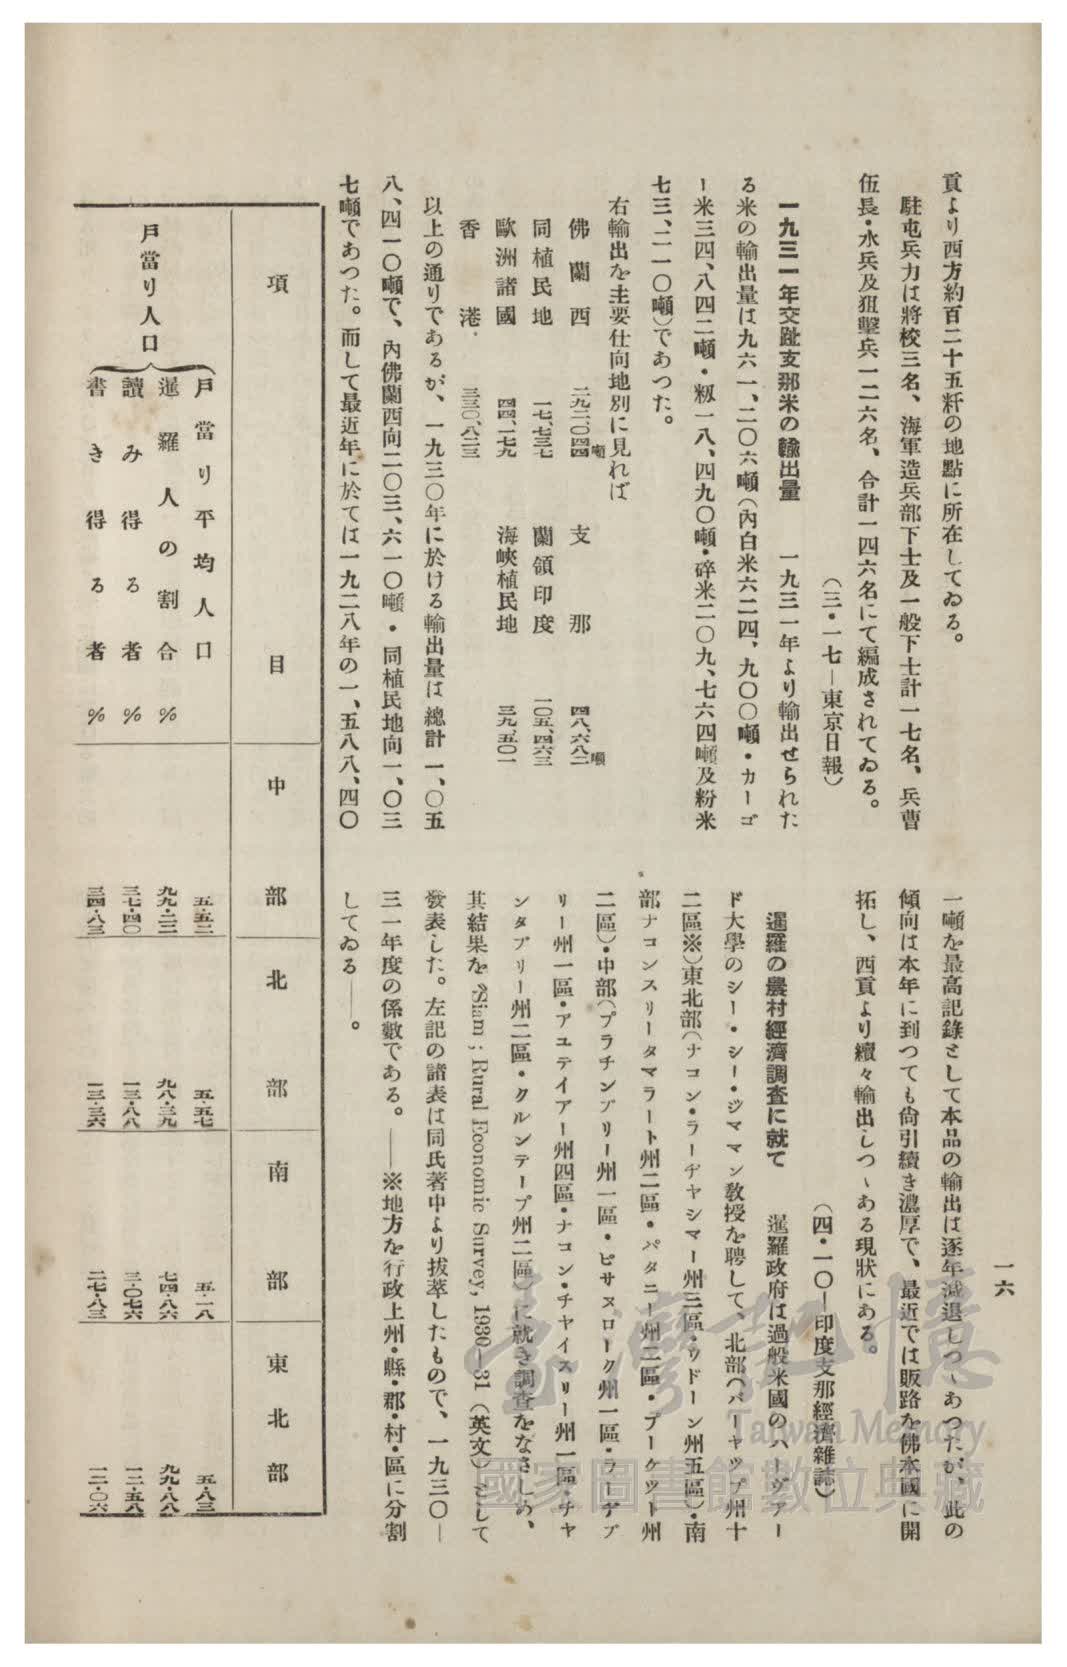 一六
貢より西方約百二十五粁の地點に所在してゐる。
駐屯兵力は將校三名、海軍造兵部下士及一般下士計一七名、兵曹
伍長・水兵及狙擊兵一二六名、合計一四六名にて編成されてゐる。
(三・一七—東京日報)
一九三一年交趾支那米の輸出量 一九三一年より輸出せられた
る米の輸出量は九六一、二〇六噸(內白米六二四、九〇〇噸・カーゴ
ー米三四、八四二噸・籾一八、四九〇噸・碎米二〇九、七六四噸及粉米
七三、二一〇噸)であつた。
右輸出を主要仕向地別に見れば
佛蘭西 二九二、〇四四噸 支那 四八、六八二噸
同植民地 一七、七三七 蘭領印度 一〇五、四六三
歐洲諸國 四四、一七九 海峽植民地 三九、五〇一
香港 三三〇、八二三
以上の通りであるが、一九三〇年に於ける輸出量は總計一、〇五
八、四一〇噸で、內佛蘭西向二〇三、六一〇噸・同植民地向一、〇三
七噸であつた。而して最近年に於ては一九二八年の一、五八八、四〇
一噸を最高記錄として本品の輸出は逐年減退しつゝあつたが、此の
傾向は本年に到つても尙引續き濃厚で、最近では販路を佛本國に開
拓し、西貢より續々輸出しつゝある現狀にある。
(四・一〇—印度支那經濟雜誌)
暹羅の農村經濟調査に就て 暹羅政府は過般米國のハーヴァー
ド大學のシー・シー・ジママン敎授を聘して、北部(パーヤップ州十
二區※)東北部(ナコン・ラーヂヤシマー州三區・ウドーン州五區)・南
部ナコンスリータマラート州二區・パタニー州二區・プーケット州
二區)・中部(プラチンブリー州一區・ピサヌローク州一區・ラーヂブ
リー州一區・アユテイアー州四區・ナコン・チヤイスリー州一區・チヤ
ンタブリー州二區・クルンテープ州二區)に就き調査をなさしめ、
其結果を “Siam ; Rural Economic Survey, 1930—31 (英文)として
發表した。左記の諸表は同氏著中より拔萃したもので、一九三〇—
三一年度の係數である。——※地方を行政上州・縣・郡・村・區に分割
してゐる——。
項目 中部 北部 南部 東北部
戶當り人口
戶當り平均人口 五・五二 五・五七 五・一八 五・八三
暹羅人の割合% 九九・二二 九八・三九 七四・八六 九九・八八
讀み得る者% 三七・四〇 一三・八八 三・〇七六 一二・五八
書き得る者% 三四・八三 一三・三六 二七・八三 一二・〇六
臺灣記憶
Taiwan Memory
國家圖書館數位典藏